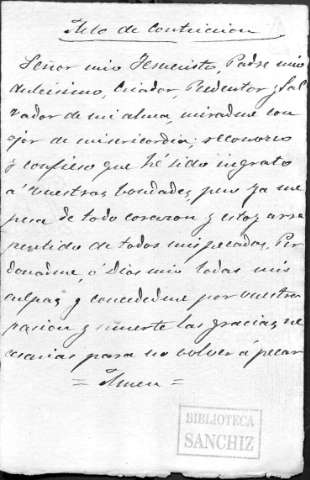 Acto de Contricion
Señor mio Jesucristo, Padre mio
dulcisimo, Criador, Redentor y Sal
vador de mi alma, miradme con
ojos de misericordia; reconozco
y confieso que hé sido ingrato
á vuestras bondades, pero ya me
pesa de todo corazon y estoy arre
pentido de todos mis pecados. Per
donadme, ó Dios mio todas mis
culpas y concededme por vuestra
pasion y muerte las gracias ne
cesarias para no volver á pecar
= Amen =
BIBLIOTECA
SANCHIZ